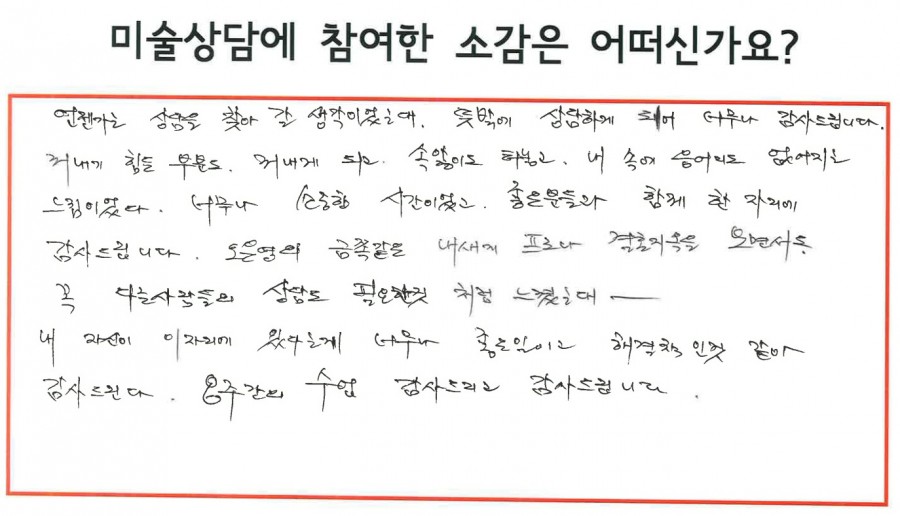 미술상담에 참여한 소감은 어떠신가요?
언젠가는 상담을 찾아 갈 생각이었는데, 뜻밖에 상담하게 되어 너무나 감사드립니다.
꺼내기 힘든 부분도, 꺼내게 되고, 속앓이도 터놓고, 내 속에 응어리도 없어지는
느낌이었다. 너무나 소중한 시간이었고, 좋은분들과 함께 한 자리에
감사드립니다. 오은영의 금쪽같은 내새게 프로나 결혼지옥을 보면서도
꼭 다른사람들의 상담도 필요한것 처럼 느꼈는데 —
내 자신이 이자리에 왔다는게 너무나 좋은일이고 해결책 인것 같아
감사드린다. 용주간의 수업 감사드리고 감사드립니다.